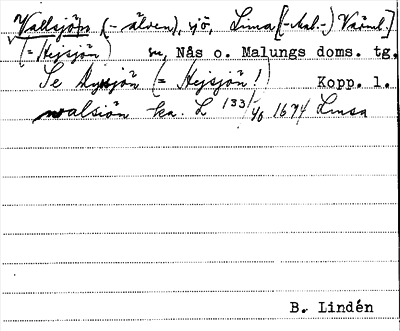 Vallsjön (-älven), sjö, Lima [-Aal.-) Värml.]
(= Hysjön) sn, Nås o. Malungs doms. tg.
Se Hysjön (= Hejsjön!) Kopp. l.
walsiön ka. L 133/ 46 1674 Limsa
B. Lindén